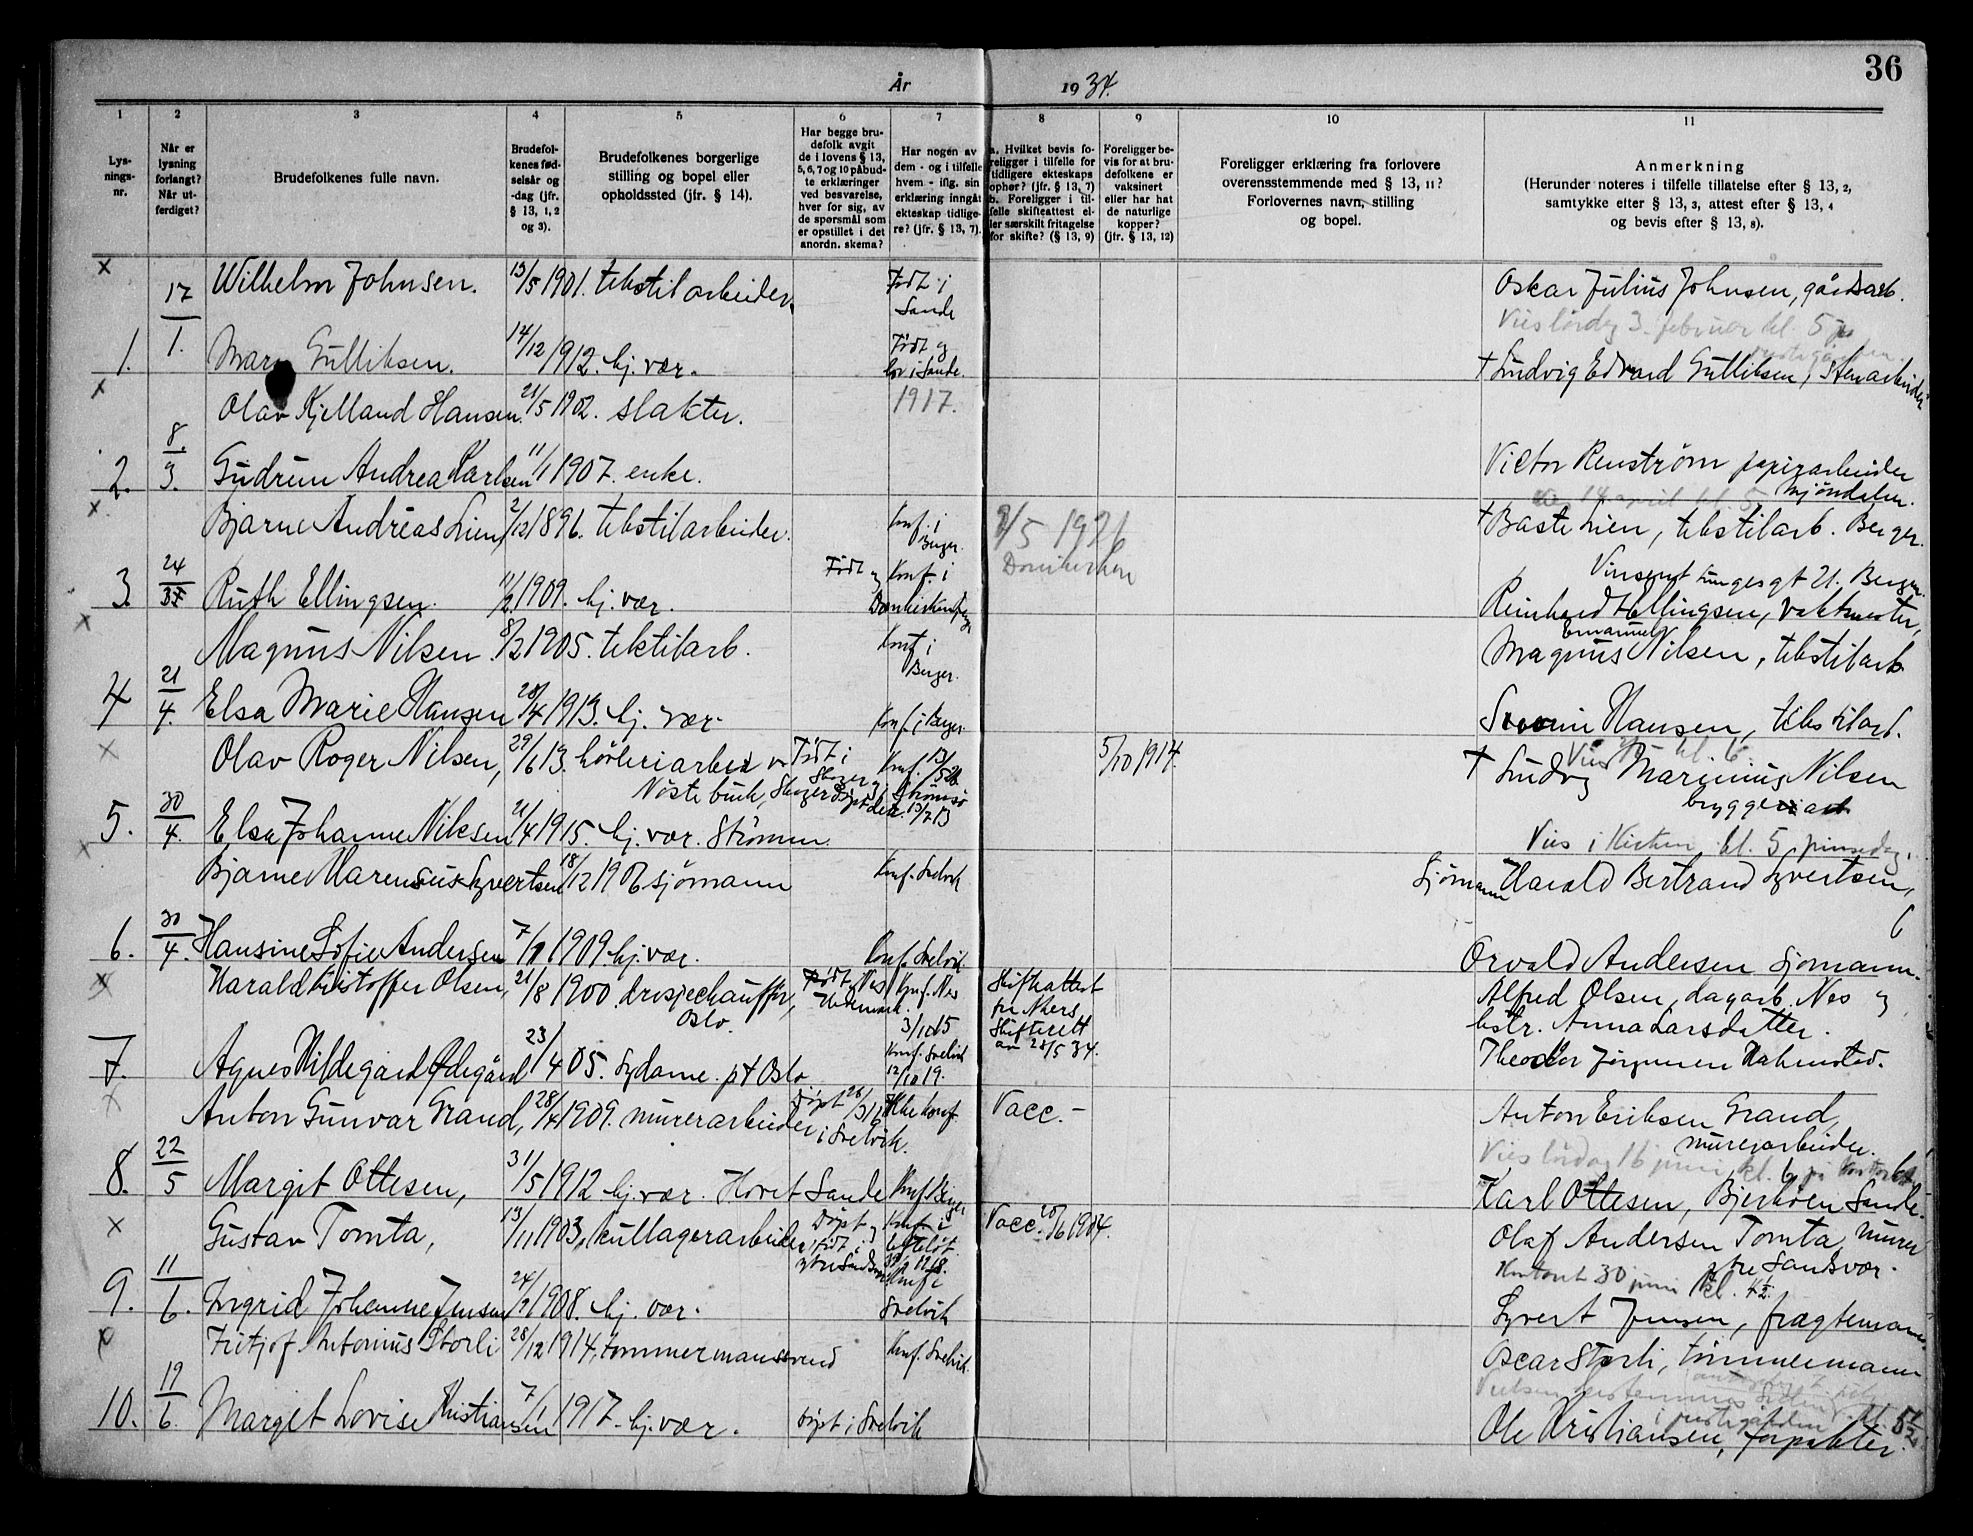 36
År 1934.
1 2 3 4 5 6 7 8 9 10 11
Lys-
nings-
nr.
Når er
lysning
forlangt?
Når ut-
ferdiget?
Brudefolkenes fulle navn.
Brudefol-
kenes fød-
selsår og
-dag (jfr.
§ 13, 1, 2
og 3).
Brudefolkenes borgerlige
stilling og bopel eller
opholdssted (jfr. § 14).
Har begge bru-
defolk avgit
de i lovens § 13,
5, 6, 7 og 10 påbud-
te erklæringer
ved besvarelse,
hver for sig, av
de spørsmål som
er opstillet i det
anordn. skema?
Har nogen av
dem - og i tilfelle
hvem - iflg. sin
erklæring inngåt
ekteskap tidlige-
re? (jfr. § 13, 7).
a. Hvilket bevis fo-
religger i tilfelle for
tidligere ekteskaps
ophør? (jfr. § 13, 7)
b. Foreligger i til-
felle skifteattest el-
ler særskilt fritagelse
for skifte? (§ 13, 9)
Foreligger be-
vis for at bru-
defolkene er
vaksinert
eller har hat
de naturlige
kopper?
(jfr. § 13, 12)
Foreligger erklæring fra forlovere
overensstemmende med § 13, 11?
Forlovernes navn, stilling
og bopel.
Anmerkning
(Herunder noteres i tilfelle tillatelse efter § 13, 2,
samtykke efter § 13, 3, attest efter § 13, 4
og bevis efter § 13, 8).
x Wilhelm Johnsen. 13/5 1901. tekstilarbeider Født i Sande Oskar Julius Johnsen, gårdsarb.
Vies lørdag 3. februar kl. 5
1. 17/1. Mary Gulliksen. 14/12 1912. hj. vær. Født og bor i Sande. + Ludvig Edvard Gulliksen, Stenarbeider
x Olav Kjelland Hansen 21/5 1902. slakter. 1917.
2. 8/3. Gudrun Andrea Karlsen 11/1 1907. enke. Victor Renström papirarbeider Mjöndalen.
14 april kl. 5
x Bjarne Andreas Lien, 2/12 1896. tekstilarbeider. Konf. i Berger. 9/5 1926 Domkirken + Baste Lien, tekstilarb. Berger.
Vincent Lungesgt 21. Bergen.
3. 24/3 Ruth Ellingsen. 11/2 1909. hj. vær. Født og Konf. i Domkirken Reinhard Ellingsen, Vaktmester,
x Magnus Nilsen. 8/2 1905. tekstilarb. Konf. i Berger. Magnus Emanuel Nilsen, tekstilarb.
4 21/4. Elsa Marie Hansen 28/4 1913. hj. vær. Konf. i Berger. Severin Hansen, tekstilarb.
Vies kl. 6
x Olav Roger Nilsen, 29/6 13. høvleriarbeider Født i Skoger Konf. 5/10 1914. + Ludvig Marinius Nilsen
Nøstebukk, Skoger Strømsø bryggeriarb
5. 30/4. Elsa Johanne Nilsen 21/4 1915. hj. vær. Strömm
Vies i Kirken kl. 5 pinsedag.
x Bjarne Marensius Syvertsen 18/12 1906 sjömann Konf. Svelvik Sjömann Harald Bertrand Syvertsen,
6. 30/4. Hansine Sofie Andersen 7/11 1909. hj. vær. Konf. Svelvik Orvald Andersen Sjömann.
x Harald Kristoffer Olsen, 21/8 1900. drosjechauffør, Oslo. Født Nes Hedemark. Konf. Nes 3/10 15 Skifteattest fra Akers Skifterett av 28/5 34. Alfred Olsen, dagarb. Nes og
hstr. Anna Larsdatter.
7. Agnes Hildegard Ødegård 23/4 05. Sydame. pt Oslo Konf. Svelvik 12/10 19. Theodor Jørgensen Holmsted.
x Anton Gunvar Grand, 28/4 1909. murerarbeider Døpt i Svelvik. Ikke konf. Vacc. - Anton Eriksen Grand,
murerarbeider.
Vies lördag 16 juni kl. 6 på kontoret
8. 22/5 Margit Ottesen, 31/5 1912 hj. vær. Hovet Sande Konf. Berger Karl Ottesen, Bjerkøen Sande.
x Gustav Tomta, 13/11 1903, kullagerarbeider Døpt og født i Konf. i Vacc. 20/6 1904. Olaf Andersen Tomta, murer
Sandsvær.
Kontoret 30 juni kl. 4 1/2
9. 11/6. Ingrid Johanne Jensen 24/2 1908. hj. vær. Konf i Svelvik Syvert Jensen, fragtemann
x Fritjof Antonius Storli 28/12 1914, tømmermannssvend Konf. Svelvik. Oscar Storli, tömmermann
10. 19/6. Margit Lovise Kristiansen 7/1 1917. hj. vær. døpt i Svelvik Ole Kristiansen, forpakter.
kl. 5 1/2